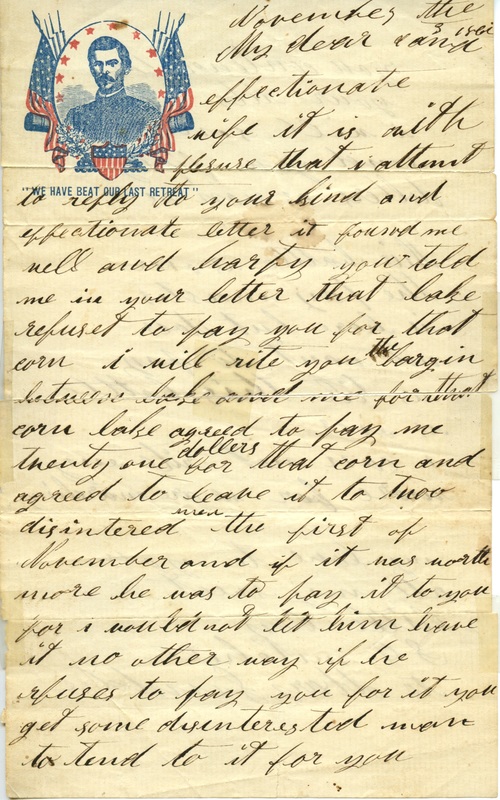 November the
3 1861
My dear and
effectionate
wife it is with
plesure that i attemt
"WE HAVE BEAT OUR LAST RETREAT"
to reply to your kind and
effectionate letter it found me
well and harty you told
me in your letter that lake
refuset to pay you for that
corn i will rite you the bargin
between lake and me for that
corn lake agreed to pay me
twenty one dollers for that corn and
agreed to leave it to twoo
disintered men the first of
November and if it was worth
more he was to pay it to you
for i would not let him have
it no other way if he
refuses to pay you for it you
get some disinterested man
to tend to it for you